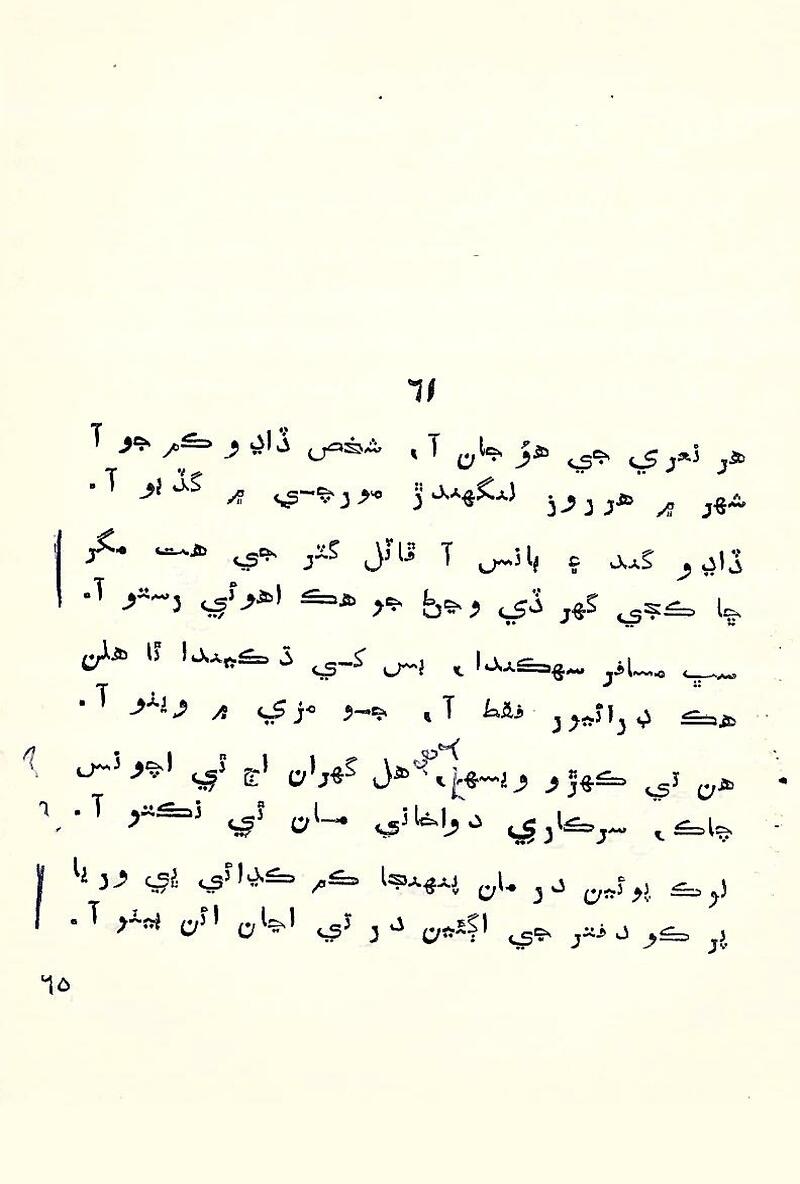 ٦١
هر نعري جي هوُ جان آ، شخص ڏاڍو ڪم جو آ
شهر ۾ هرروز لنگهندڙ مورچي ۾ گڏيو آ.
ڏاڍو گند ۽ بانس آ ڦاٽل گٽر جي هت مگر
ڇا ڪجي گهر ڏي وڃڻ جو هڪ اهوئي رستو آ.
سڀ مسافر سهڪندا، بس کي ڌڪيندا ٿا هلن
هڪ ڊرائيور فقط آ، جو مزي ۾ ويٺو آ.
هن تي ڪهڙو ويسهه، هل گهران اڄ ئي اچونس
چاڪ، سرڪاري دواخاني مان ئي نڪتو آ.
لوڪ پوئين در مان پنهنجا ڪم ڪڍائي پي وريا
پر ڪو دفتر جي اڳئين در تي اڃان ائن بيٺو آ.
٦٥